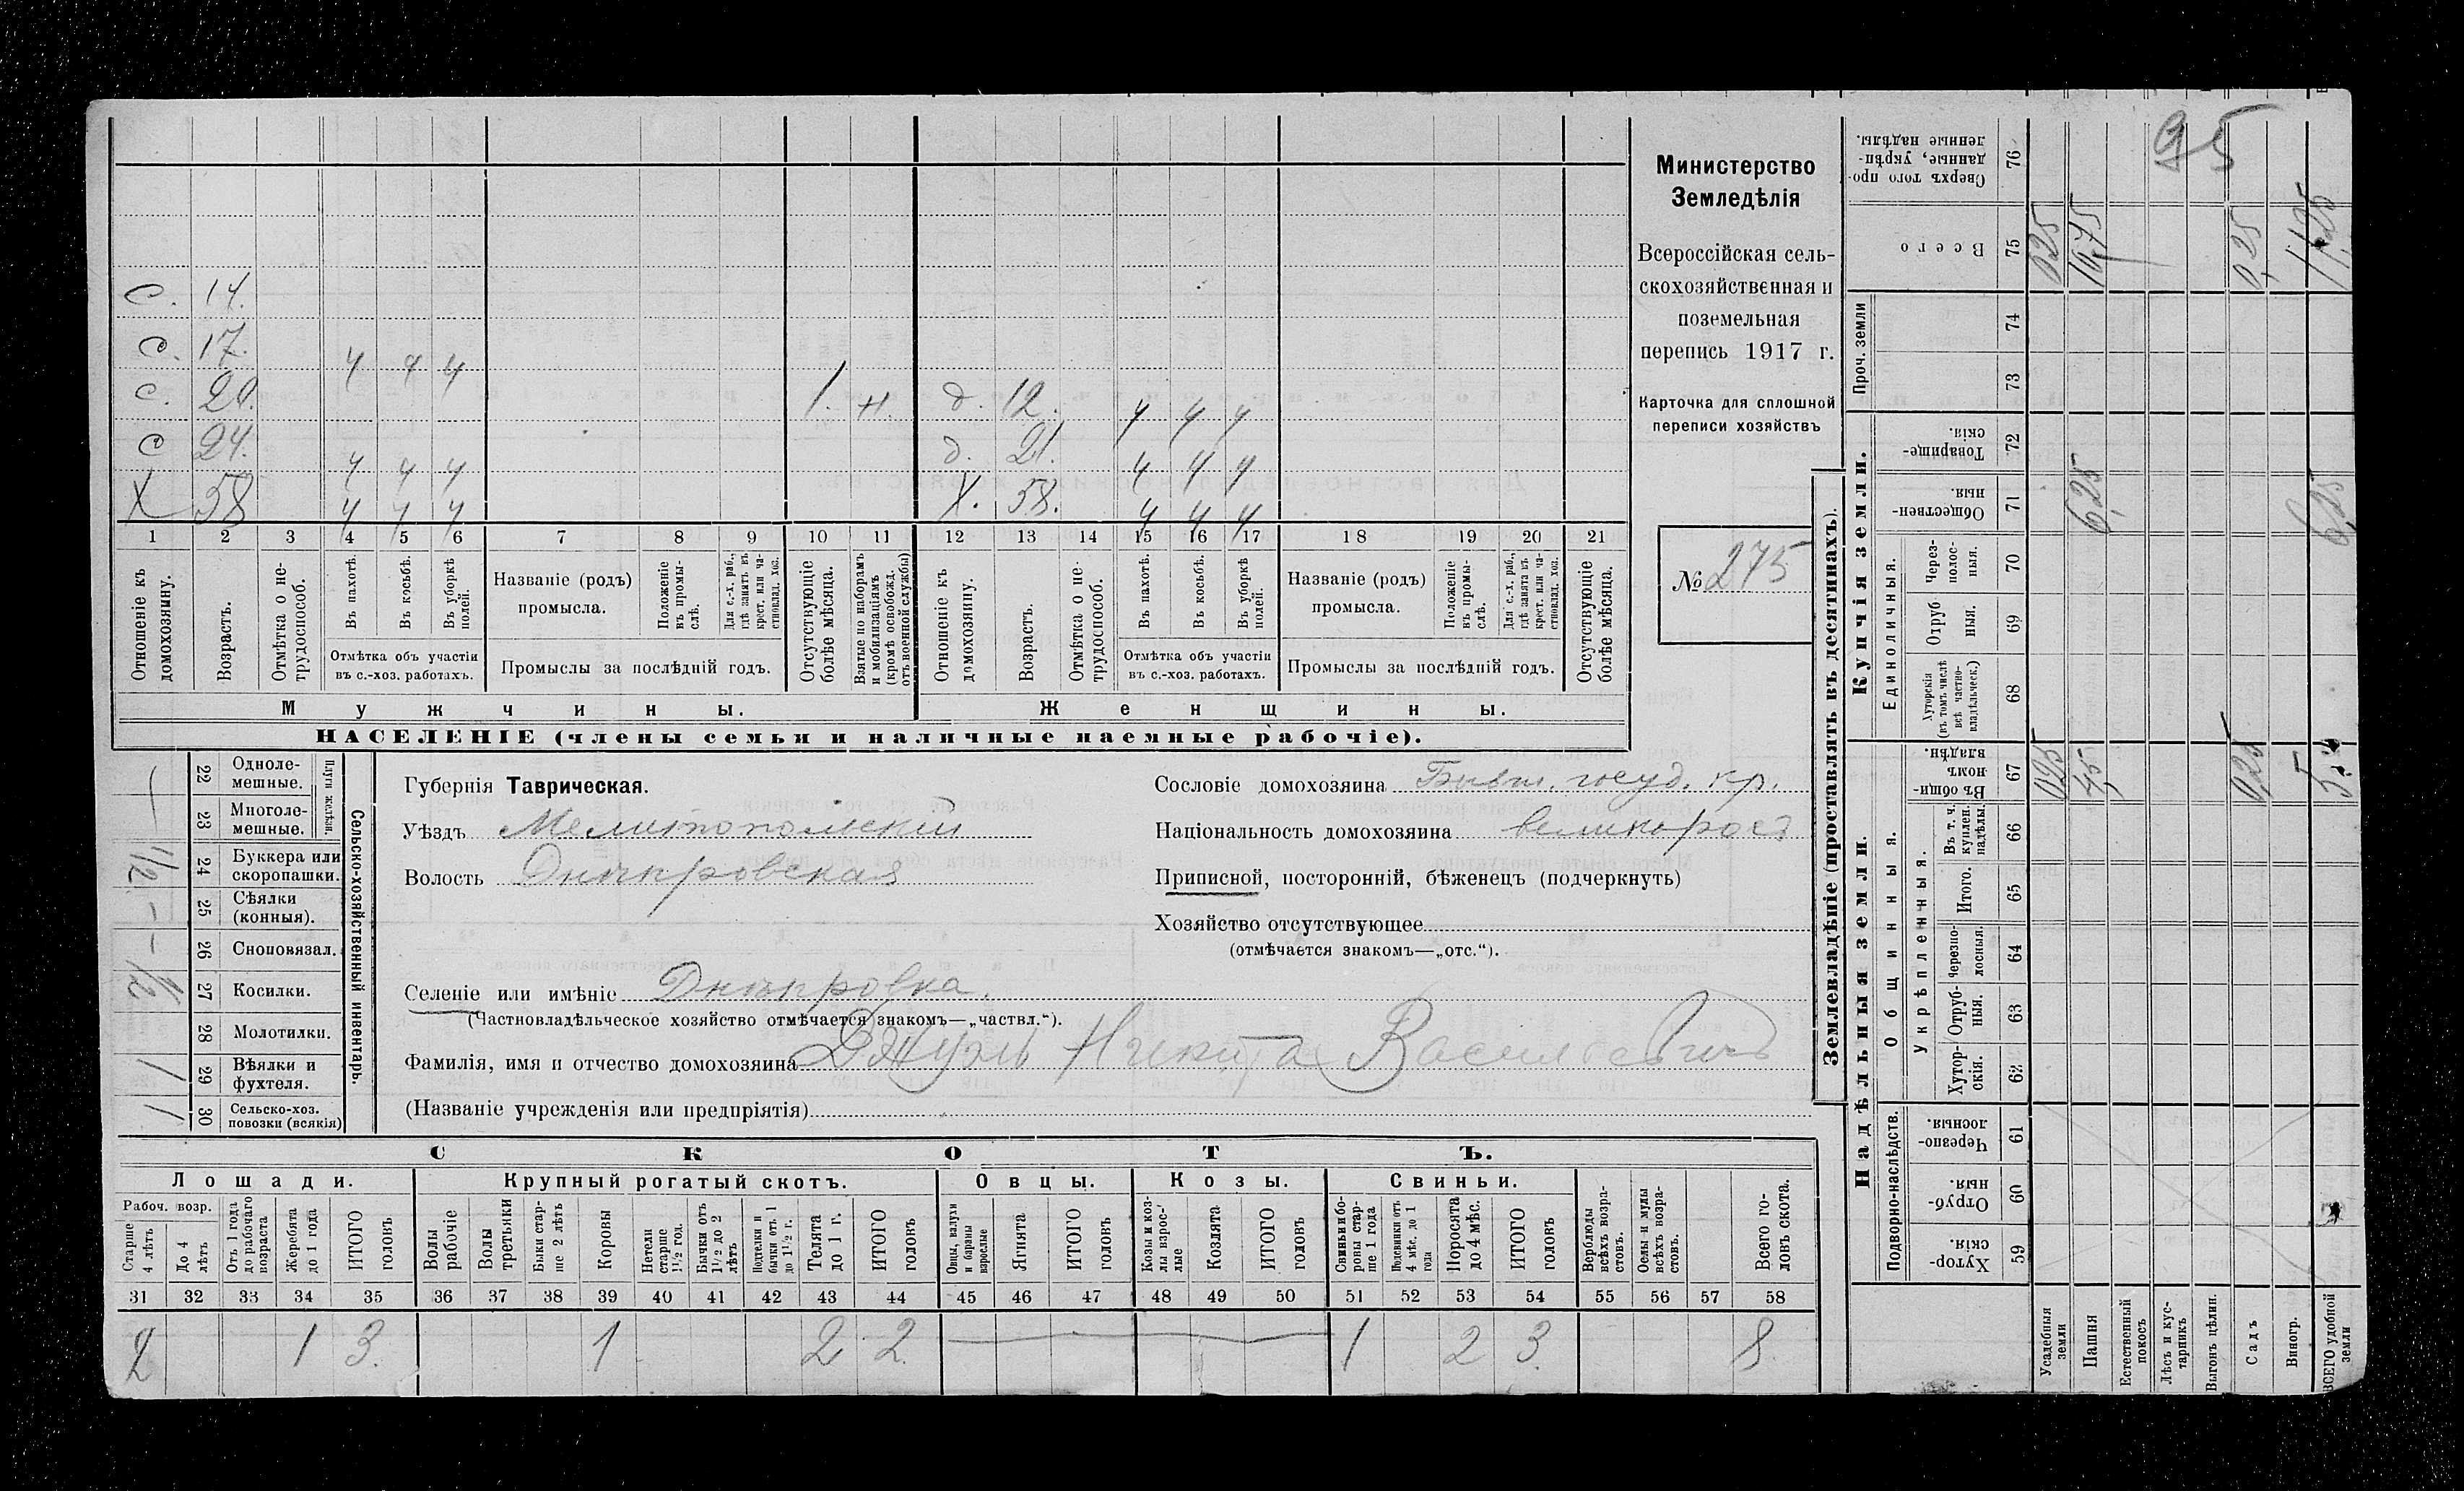 95
Министерство
Земледѣлія
Всероссійская сель-
скохозяйственная и
поземельная
перепись 1917 г.
Карточка для сплошной
переписи хозяйствъ
№ 275
с. 14.
с. 17. ч ч ч
с. 20. 1. н д. 12. ч ч ч
с 24. ч ч ч д. 21. ч ч ч
Х 58 ч ч ч Х. 58. ч ч ч
1 2 3 4 5 6 7 8 9 10 11 12 13 14 15 16 17 18 19 20 21
Отношеніе къ домохозяину.
Возрастъ.
Отмѣтка о не-
трудоспособ.
Въ пахотѣ.
Въ косьбѣ.
Въ уборкѣ полей.
Отмѣтка объ участіи
въ с.-хоз. работахъ.
Названіе (родъ)
промысла.
Положеніе въ промы-
слѣ.
Для с.-х. раб., гдѣ занятъ въ крест. или ча-
стновлад. хоз.
Промыслы за послѣдній годъ.
Отсутствующіе болѣе мѣсяца.
Взятые по наборамъ и мобилизаціямъ (кромѣ освобожд. отъ военной службы)
Отношеніе къ домохозяину.
Возрастъ.
Отмѣтка о не-
трудоспособ.
Въ пахотѣ.
Въ косьбѣ.
Въ уборкѣ полей.
Отмѣтка объ участіи
въ с.-хоз. работахъ.
Названіе (родъ)
промысла.
Положеніе въ промы-
слѣ.
Для с.-х. раб., гдѣ занята въ крест. или ча-
стновлад. хоз.
Промыслы за послѣдній годъ.
Отсутствующіе болѣе мѣсяца.
Мужчины.
Женщины.
НАСЕЛЕНІЕ (члены семьи и наличные наемные рабочіе).
Сельско-хозяйственный инвентарь.
Плуги желѣзн.
22 Одноле-
мешные.
23 Многоле-
мешные.
24 Буккера или
скоропашки. 1/2
25 Сѣялки
(конныя). -
26 Сноповязал. -
27 Косилки. 1/2
28 Молотилки.
29 Вѣялки и
фухтеля. 1
30 Сельско-хоз.
повозки (всякія) 1
Губернія Таврическая.
Уѣздъ Мелитопольскій
Волость Днѣпровская
Сословіе домохозяина Бывш. госуд. кр.
Національность домохозяина великоросъ
Приписной, посторонній, бѣженецъ (подчеркнуть)
Хозяйство отсутствующее
(отмѣчается знакомъ—„отс.“).
Селеніе или имѣніе Днѣпровка.
(Частновладѣльческое хозяйство отмѣчается знакомъ—„частвл.“).
Фамилія, имя и отчество домохозяина Никита Васильевичъ
(Названіе учрежденія или предпріятія)
СКОТЪ.
Лошади. Крупный рогатый скотъ. Овцы. Козы. Свиньи.
Рабоч. возр.
Старше 4 лѣтъ
До 4 лѣтъ
Отъ 1 года до рабочаго возраста
Жеребята до 1 года
ИТОГО головъ
Волы рабочіе
Волы третьяки
Быки стар-
ше 2 лѣтъ
Коровы
Нетели старше 1½ год.
Бычки отъ 1½ до 2 лѣтъ
Подтелки и бычки отъ 1 до 1½ г.
Телята до 1 г.
ИТОГО головъ
Овцы, валухи и бараны взрослые
Ягнята
ИТОГО головъ
Козы и коз-
лы взрос-
лые
Козлята
ИТОГО головъ
Свиньи и бо-
ровы стар-
ше 1 года
Подсвинки отъ 4 мѣс. до 1 года
Поросята до 4 мѣс.
ИТОГО головъ
Верблюды всѣхъ возра-
стовъ.
Ослы и мулы всѣхъ возра-
стовъ.
Всего го-
ловъ скота.
31 32 33 34 35 36 37 38 39 40 41 42 43 44 45 46 47 48 49 50 51 52 53 54 55 56 57 58
2 1 3. 1 2 2. 1 2 3. 8
Землевладѣніе (проставлять въ десятинахъ).
Купчія земли.
Надѣльныя земли.
Сверхъ того про-
данные, укрѣп-
ленные надѣлы. 76
Всего 75 0,25 10,75 0,25 11,25
Проч. земли 74 73
Товарище-
скія. 72
Обществен-
ныя. 71 6,25 6,25
Единоличныя.
Черезполос-
ныя. 70
Отруб
ныя. 69
Хуторскія (въ томъ числѣ всѣ частно-
владѣльческ.) 68
Общинныя.
Въ общи-
номъ
владѣн. 67 0,25 4,5 0,25 5
Укрѣпленныя.
Въ т. ч. куплен. надѣлы 66
Итого. 65
Черезпо-
лосныя. 64
Отруб-
ныя. 63
Хутор-
скія. 62
Подворно-наслѣдств.
Черезпо-
лосныя. 61
Отруб-
ныя. 60
Хутор-
скія. 59
Усадебныя земли
Пашня
Естественный покосъ
Лѣсъ и кус-
тарникъ
Выгонъ цѣлин.
Садъ
Виногр.
ВСЕГО удобной земли